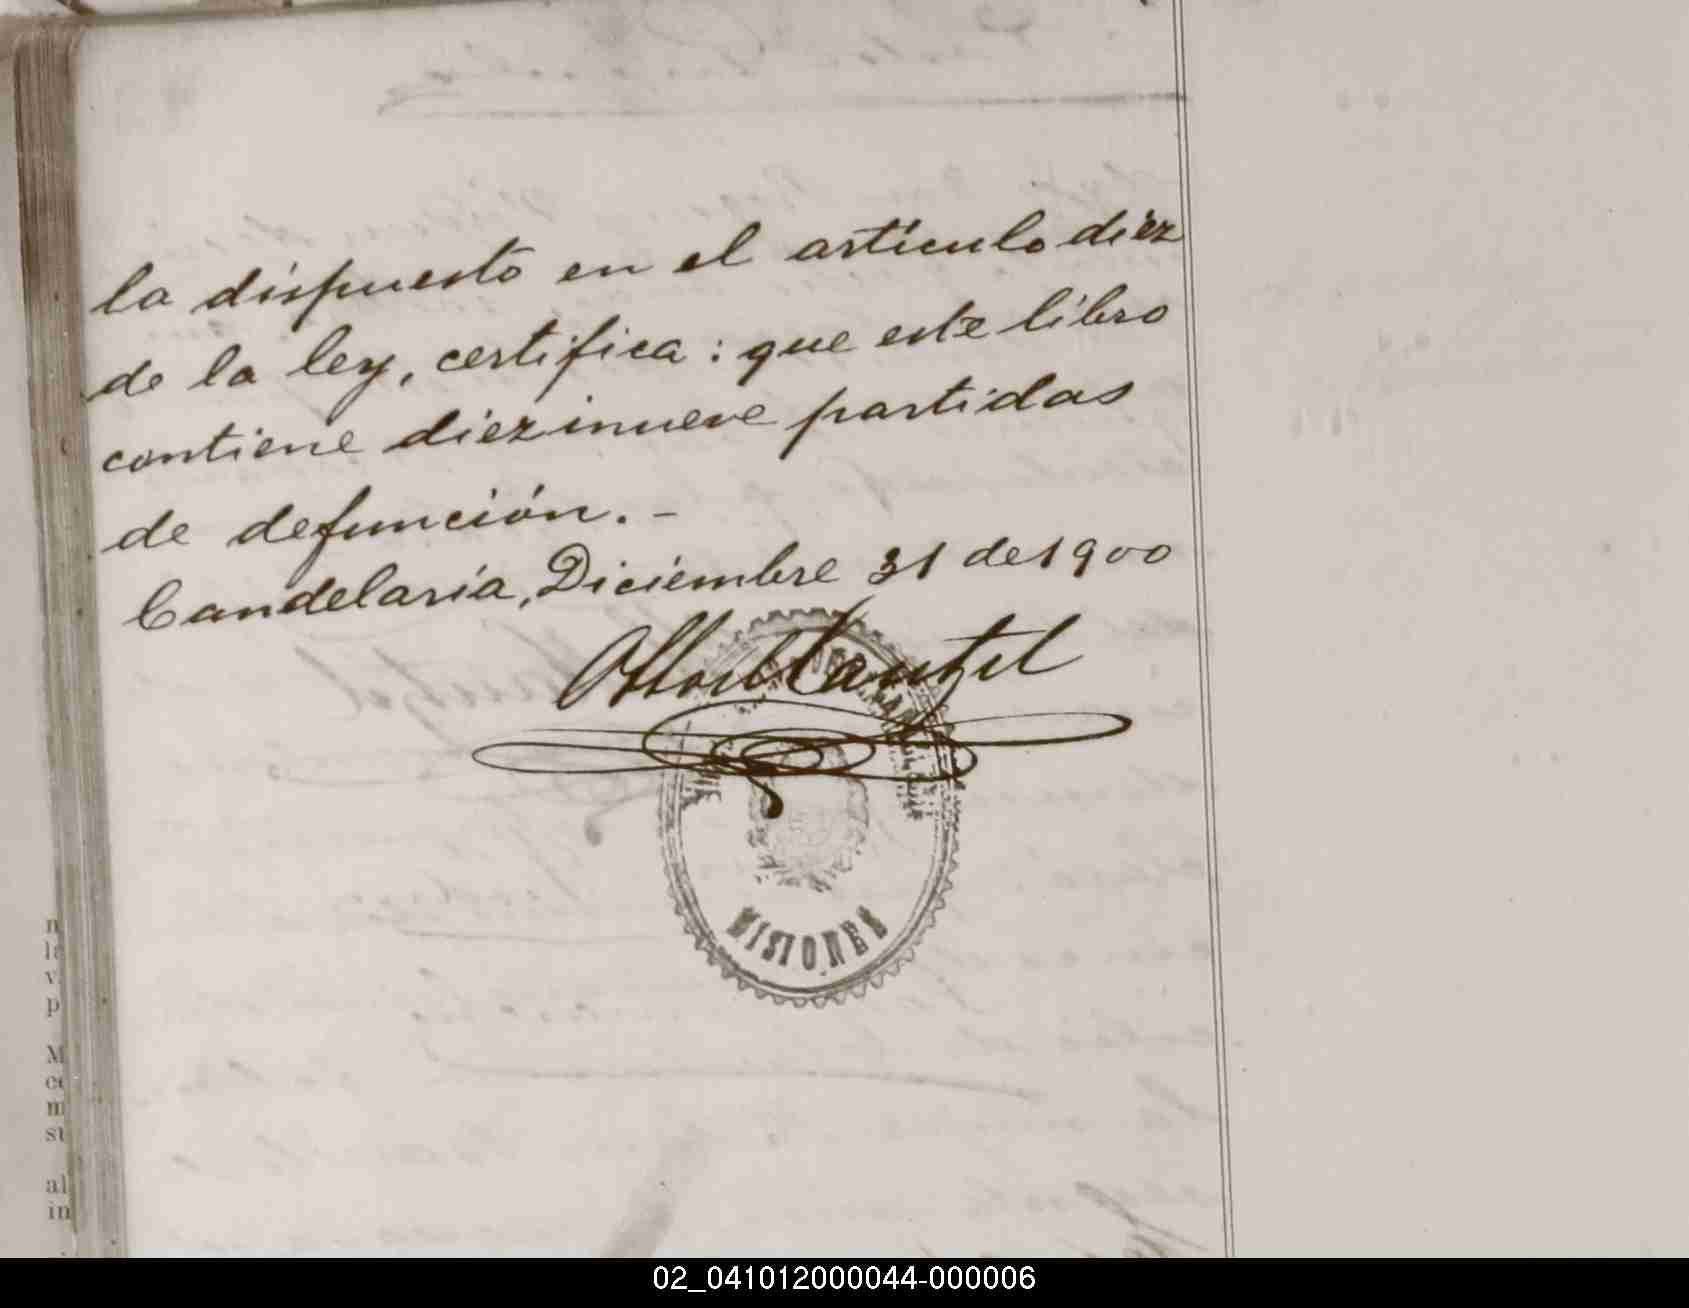 la dispuesto en el artículo diez
de la ley, certifica: que este libro
contiene diezinueve partidas
de defunción. -
Candelaria, Diciembre 31 de 1900
MISIONES
n
la
v
p
M
ce
m
su
al
in
02_041012000044-000006